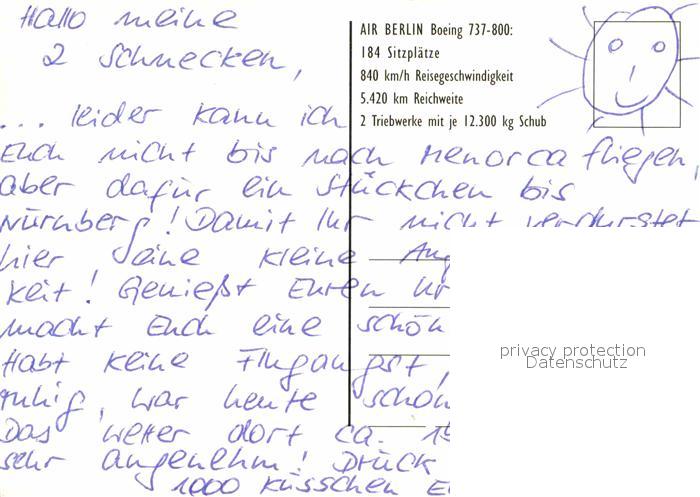 Hallo meine
2 Schnecken,
AIR BERLIN Boeing 737-800:
184 Sitzplätze
840 km/h Reisegeschwindigkeit
5.420 km Reichweite
2 Triebwerke mit je 12.300 kg Schub
... leider kann ich
Euch nicht bis nach Menorca fliegen,
aber dafür ein Stückchen bis
Nürnberg! Damit Ihr nicht verdurstet
hier eine kleine
keit! Genießt Euren Ur
macht Euch eine schön
Habt keine Flugangst,
ruhig, war heute schon
Das Wetter dort ca.
sehr angenehm! Drück
1000 Küsschen E
privacy protection
Datenschutz